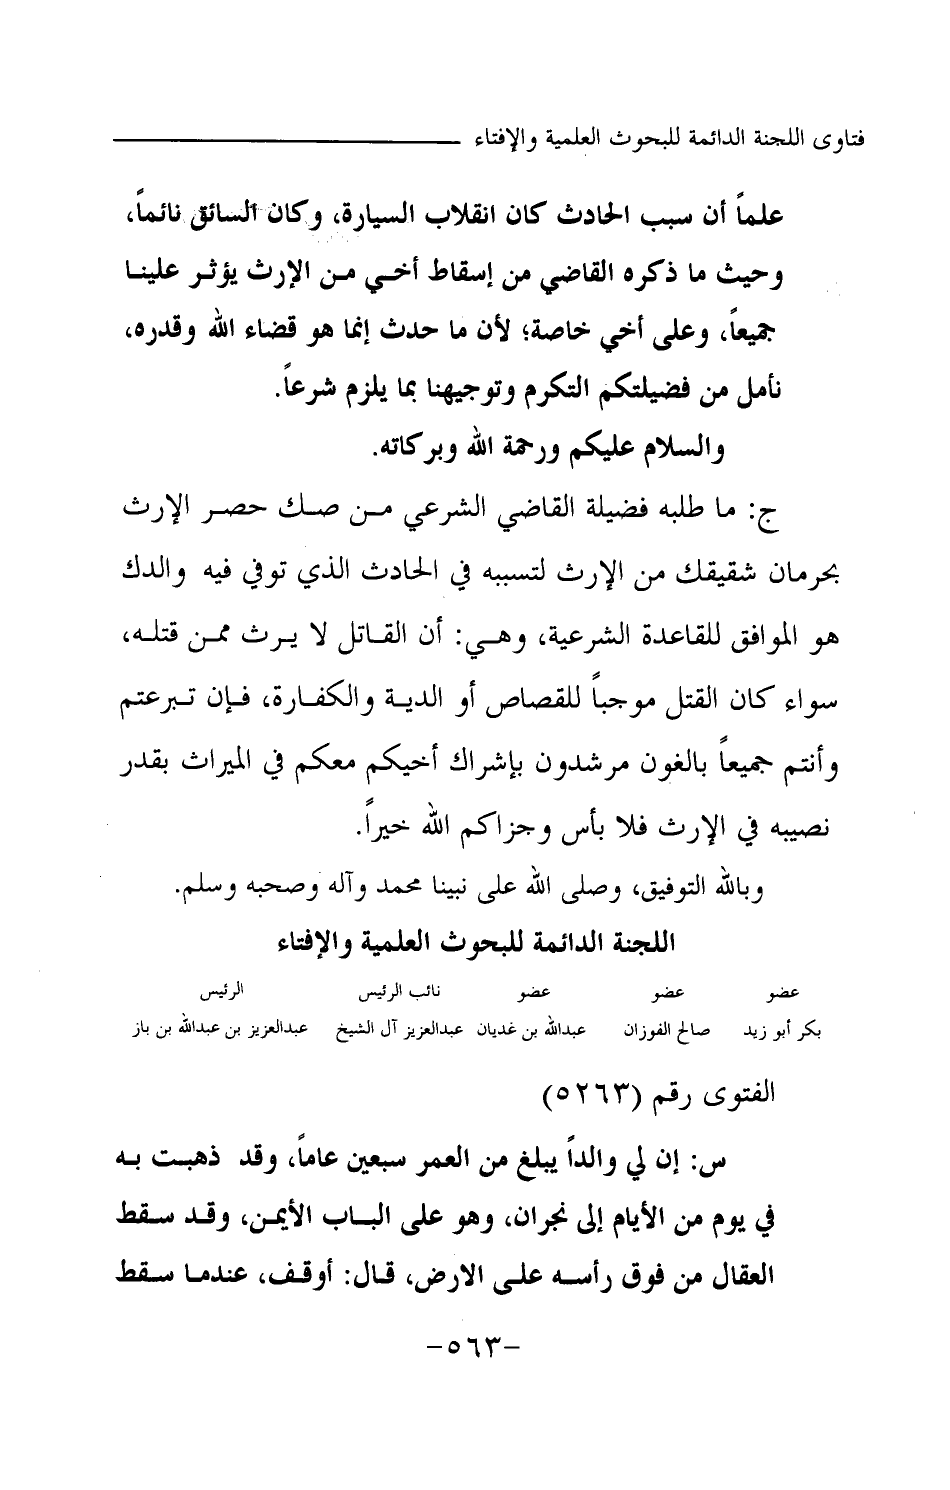 فتاوى اللجنة الدائمة للبحوث العلمية والإفتاء
علماً أن سبب الحادث كان انقلاب السيارة، وكان السائق نائماً،
وحيث ما ذكره القاضي من إسقاط أخي من الإرث يؤثر علينا
جميعاً، وعلى أخي خاصة؛ لأن ما حدث إنما هو قضاء الله وقدره،
نأمل من فضيلتكم التكرم وتوجيهنا بما يلزم شرعاً.
والسلام عليكم ورحمة الله وبركاته.
ج: ما طلبه فضيلة القاضي الشرعي من صك حصر الإرث
بحرمان شقيقك من الإرث لتسببه في الحادث الذي توفي فيه والدك
هو الموافق للقاعدة الشرعية، وهي: أن القاتل لا يرث ممن قتله،
سواء كان القتل موجباً للقصاص أو الدية والكفارة، فإن تبرعتم
وأنتم جميعاً بالغون مرشدون بإشراك أخيكم معكم في الميراث بقدر
نصيبه في الإرث فلا بأس وجزاكم الله خيراً.
وبالله التوفيق، وصلى الله على نبينا محمد وآله وصحبه وسلم.
اللجنة الدائمة للبحوث العلمية والإفتاء
عضو عضو عضو نائب الرئيس الرئيس
بكر أبو زيد صالح الفوزان عبدالله بن غديان عبدالعزيز آل الشيخ عبدالعزيز بن عبدالله بن باز
الفتوى رقم (٥٢٦٣)
س: إن لي والداً يبلغ من العمر سبعين عاماً، وقد ذهبت به
في يوم من الأيام إلى نجران، وهو على الباب الأيمن، وقد سقط
العقال من فوق رأسه على الارض، قال: أوقف، عندما سقط
-٥٦٣-